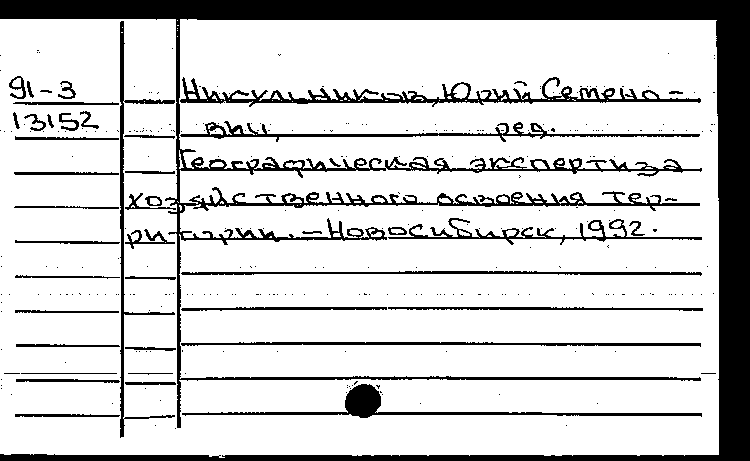 91-3
Никульников, Юрий Семено-
13152
вич, ред.
Географическая экспертиза
хозяйственного освоения тер-
ритории. – Новосибирск, 1992.